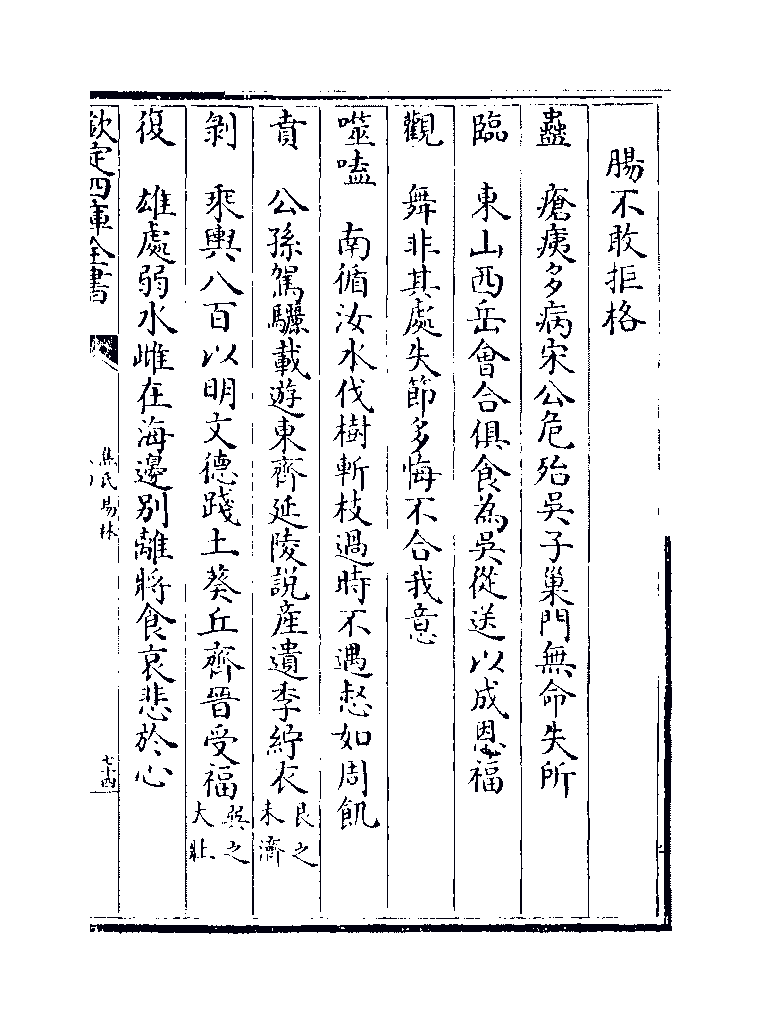 腸不敢拒格
蠱　瘡痍多病宋公危殆吳子巢門無命失所
臨　東山西岳會合俱食為吳從送以成恩福
觀　舞非其處失節多悔不合我意
噬嗑　南循汝水伐樹斬枝過時不遇惄如周飢
賁　公孫駕驪載遊東齊延陵説產遺季紵衣艮之未濟
剝　乘輿八百以明文德踐土葵丘齊晉受福巽之大壯
復　雄處弱水雌在海邊別離將食哀悲於心
欽定四庫全書
焦氏易林
七十四